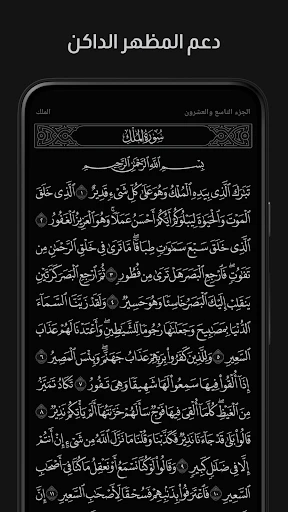 دعم المظهر الداكن
الجزء التاسع والعشرون
الملك
سُورَةُ المُلْكِ
بِسْمِ اللَّهِ الرَّحْمَٰنِ الرَّحِيمِ
تَبَٰرَكَ الَّذِي بِيَدِهِ الْمُلْكُ وَهُوَ عَلَىٰ كُلِّ شَيْءٍ قَدِيرٌ ١ الَّذِي خَلَقَ
الْمَوْتَ وَالْحَيَوٰةَ لِيَبْلُوَكُمْ أَيُّكُمْ أَحْسَنُ عَمَلًا وَهُوَ الْعَزِيزُ الْغَفُورُ
٢ الَّذِي خَلَقَ سَبْعَ سَمَٰوَٰتٍ طِبَاقًا مَّا تَرَىٰ فِي خَلْقِ الرَّحْمَٰنِ مِن
تَفَٰوُتٍ فَارْجِعِ الْبَصَرَ هَلْ تَرَىٰ مِن فُطُورٍ ٣ ثُمَّ ارْجِعِ الْبَصَرَ كَرَّتَيْنِ
يَنقَلِبْ إِلَيْكَ الْبَصَرُ خَاسِئًا وَهُوَ حَسِيرٌ ٤ وَلَقَدْ زَيَّنَّا السَّمَاءَ
الدُّنْيَا بِمَصَٰبِيحَ وَجَعَلْنَٰهَا رُجُومًا لِّلشَّيَٰطِينِ وَأَعْتَدْنَا لَهُمْ عَذَابَ
السَّعِيرِ ٥ وَلِلَّذِينَ كَفَرُوا بِرَبِّهِمْ عَذَابُ جَهَنَّمَ وَبِئْسَ الْمَصِيرُ ٦
إِذَا أُلْقُوا فِيهَا سَمِعُوا لَهَا شَهِيقًا وَهِيَ تَفُورُ ٧ تَكَادُ تَمَيَّزُ
مِنَ الْغَيْظِ كُلَّمَا أُلْقِيَ فِيهَا فَوْجٌ سَأَلَهُمْ خَزَنَتُهَا أَلَمْ يَأْتِكُمْ نَذِيرٌ ٨
قَالُوا بَلَىٰ قَدْ جَاءَنَا نَذِيرٌ فَكَذَّبْنَا وَقُلْنَا مَا نَزَّلَ اللَّهُ مِن شَيْءٍ إِنْ أَنتُمْ
إِلَّا فِي ضَلَٰلٍ كَبِيرٍ ٩ وَقَالُوا لَوْ كُنَّا نَسْمَعُ أَوْ نَعْقِلُ مَا كُنَّا فِي أَصْحَٰبِ
السَّعِيرِ ١٠ فَاعْتَرَفُوا بِذَنبِهِمْ فَسُحْقًا لِّأَصْحَٰبِ السَّعِيرِ ١١